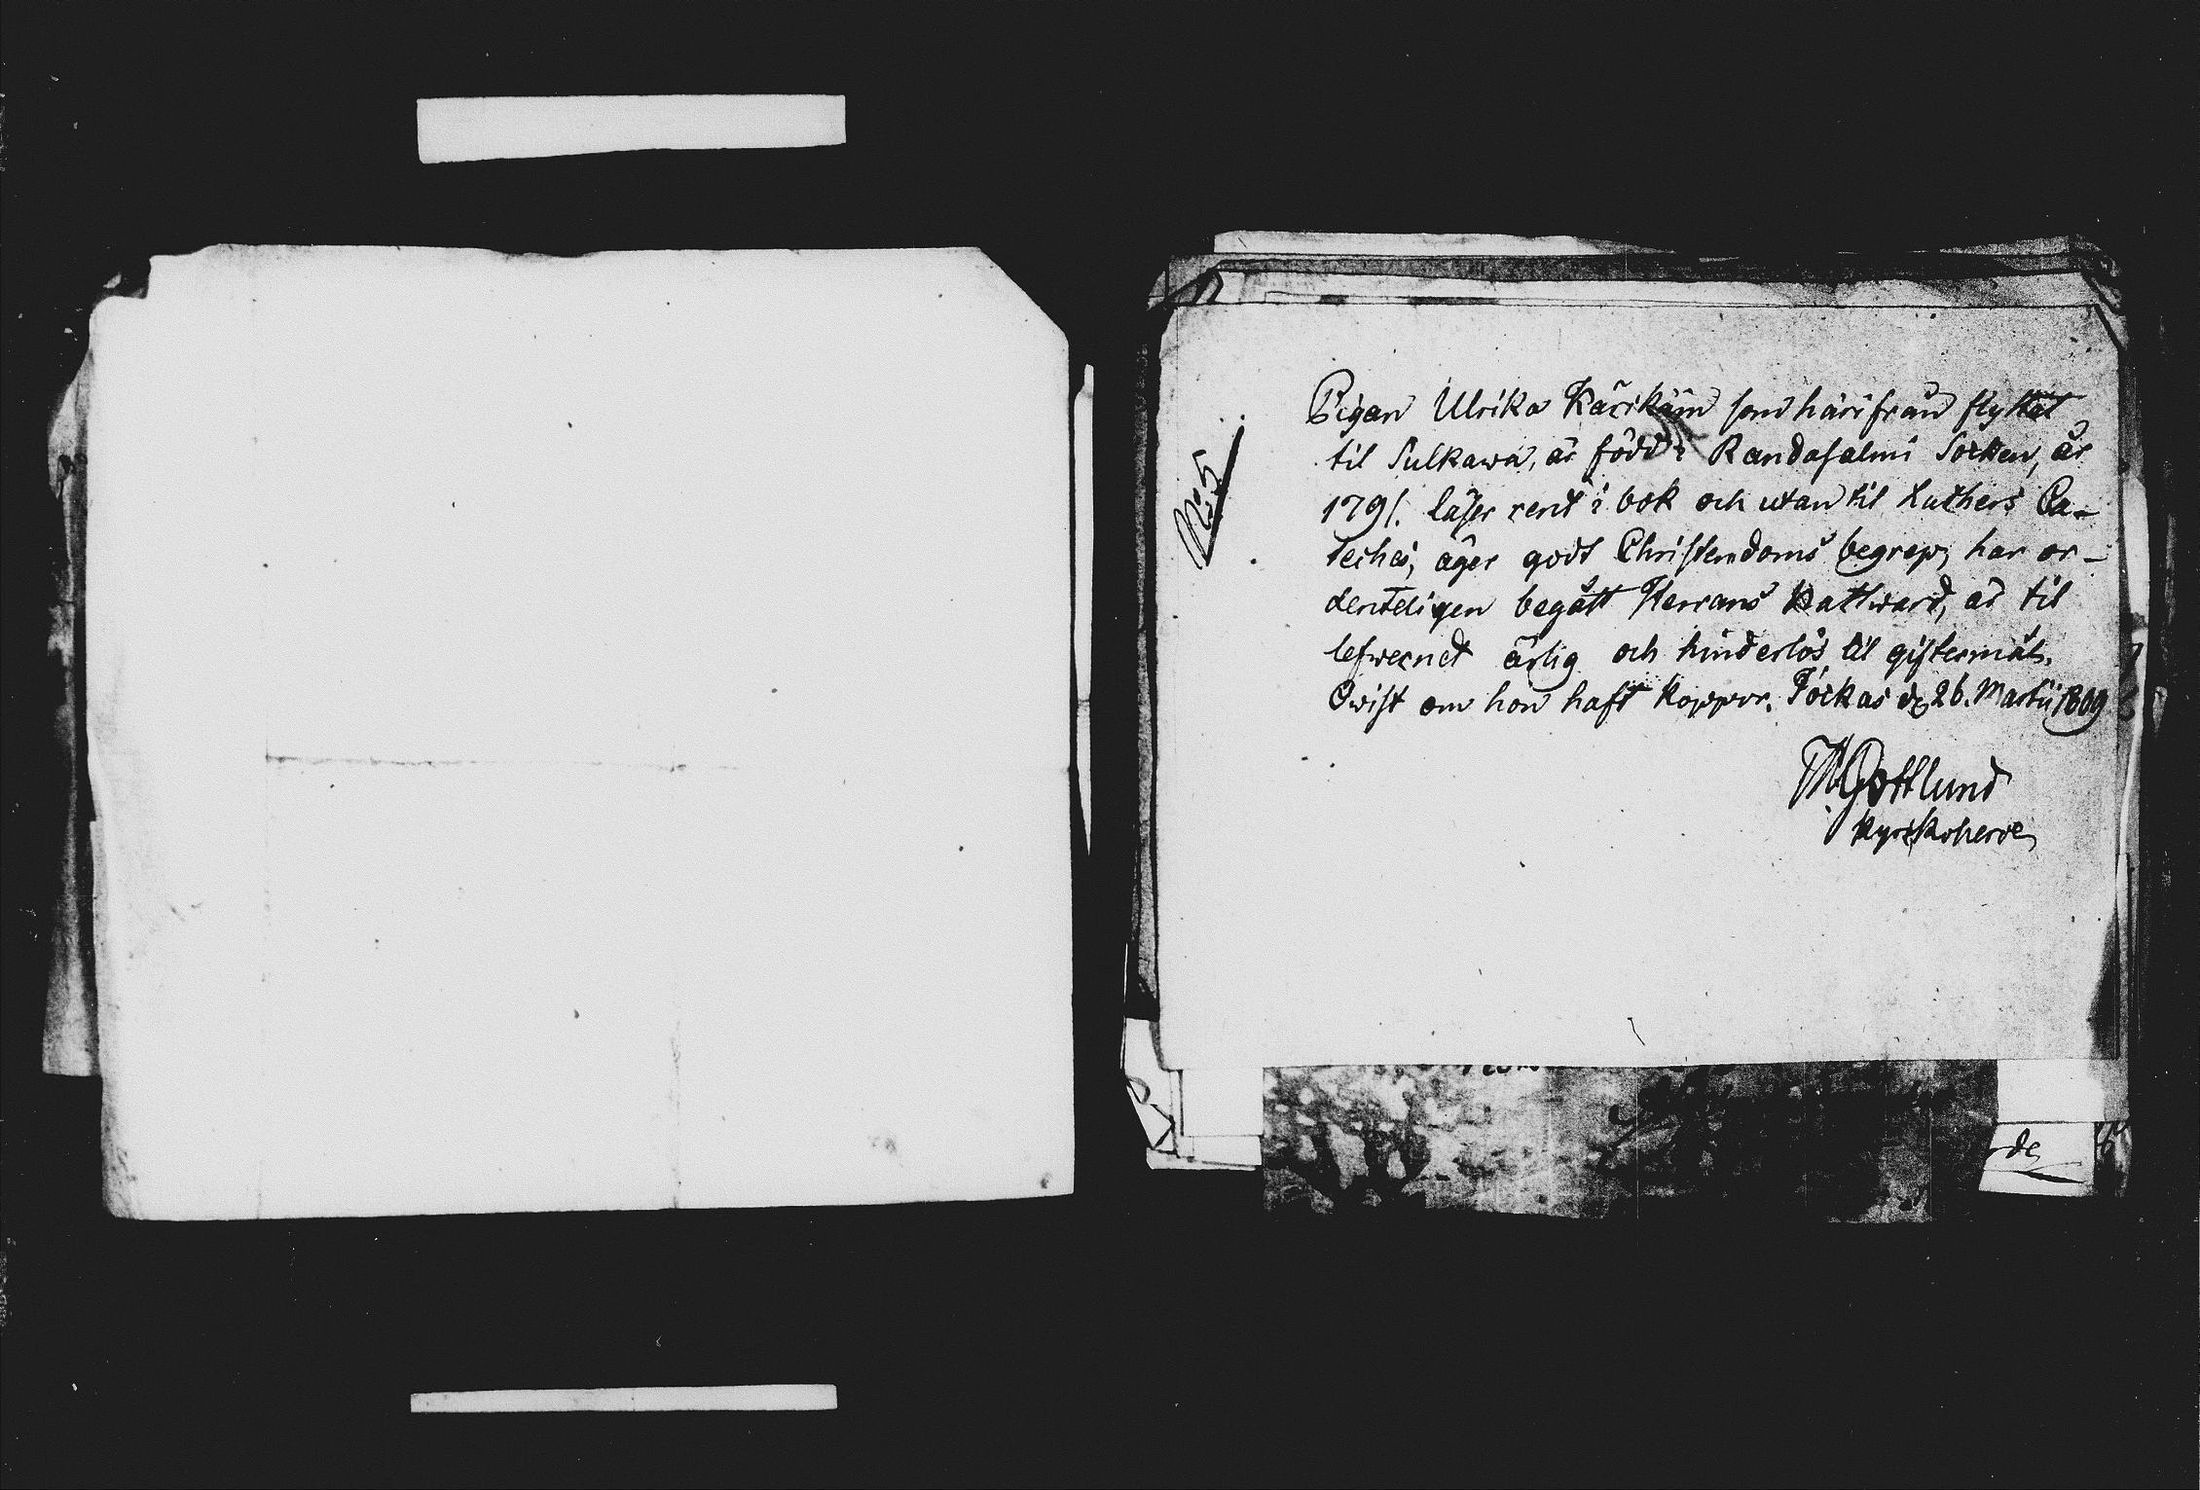 No 5
Pigan Ulrika Kärikäin som härifrån flyttat
til Sulkawa, är född i Randasalmi Socken, år
1791. läser rent i bok och utan til Luthers Ca-
teches, äger godt Christendoms begrep, har or-
denteligen begått Herrans Nattward, är til
lefwernet ärlig och hinderlös til giftermål.
Owist om hon haft koppor. Jockas d. 26. Martii 1809
M Gottlund
Kyrkoherde
de